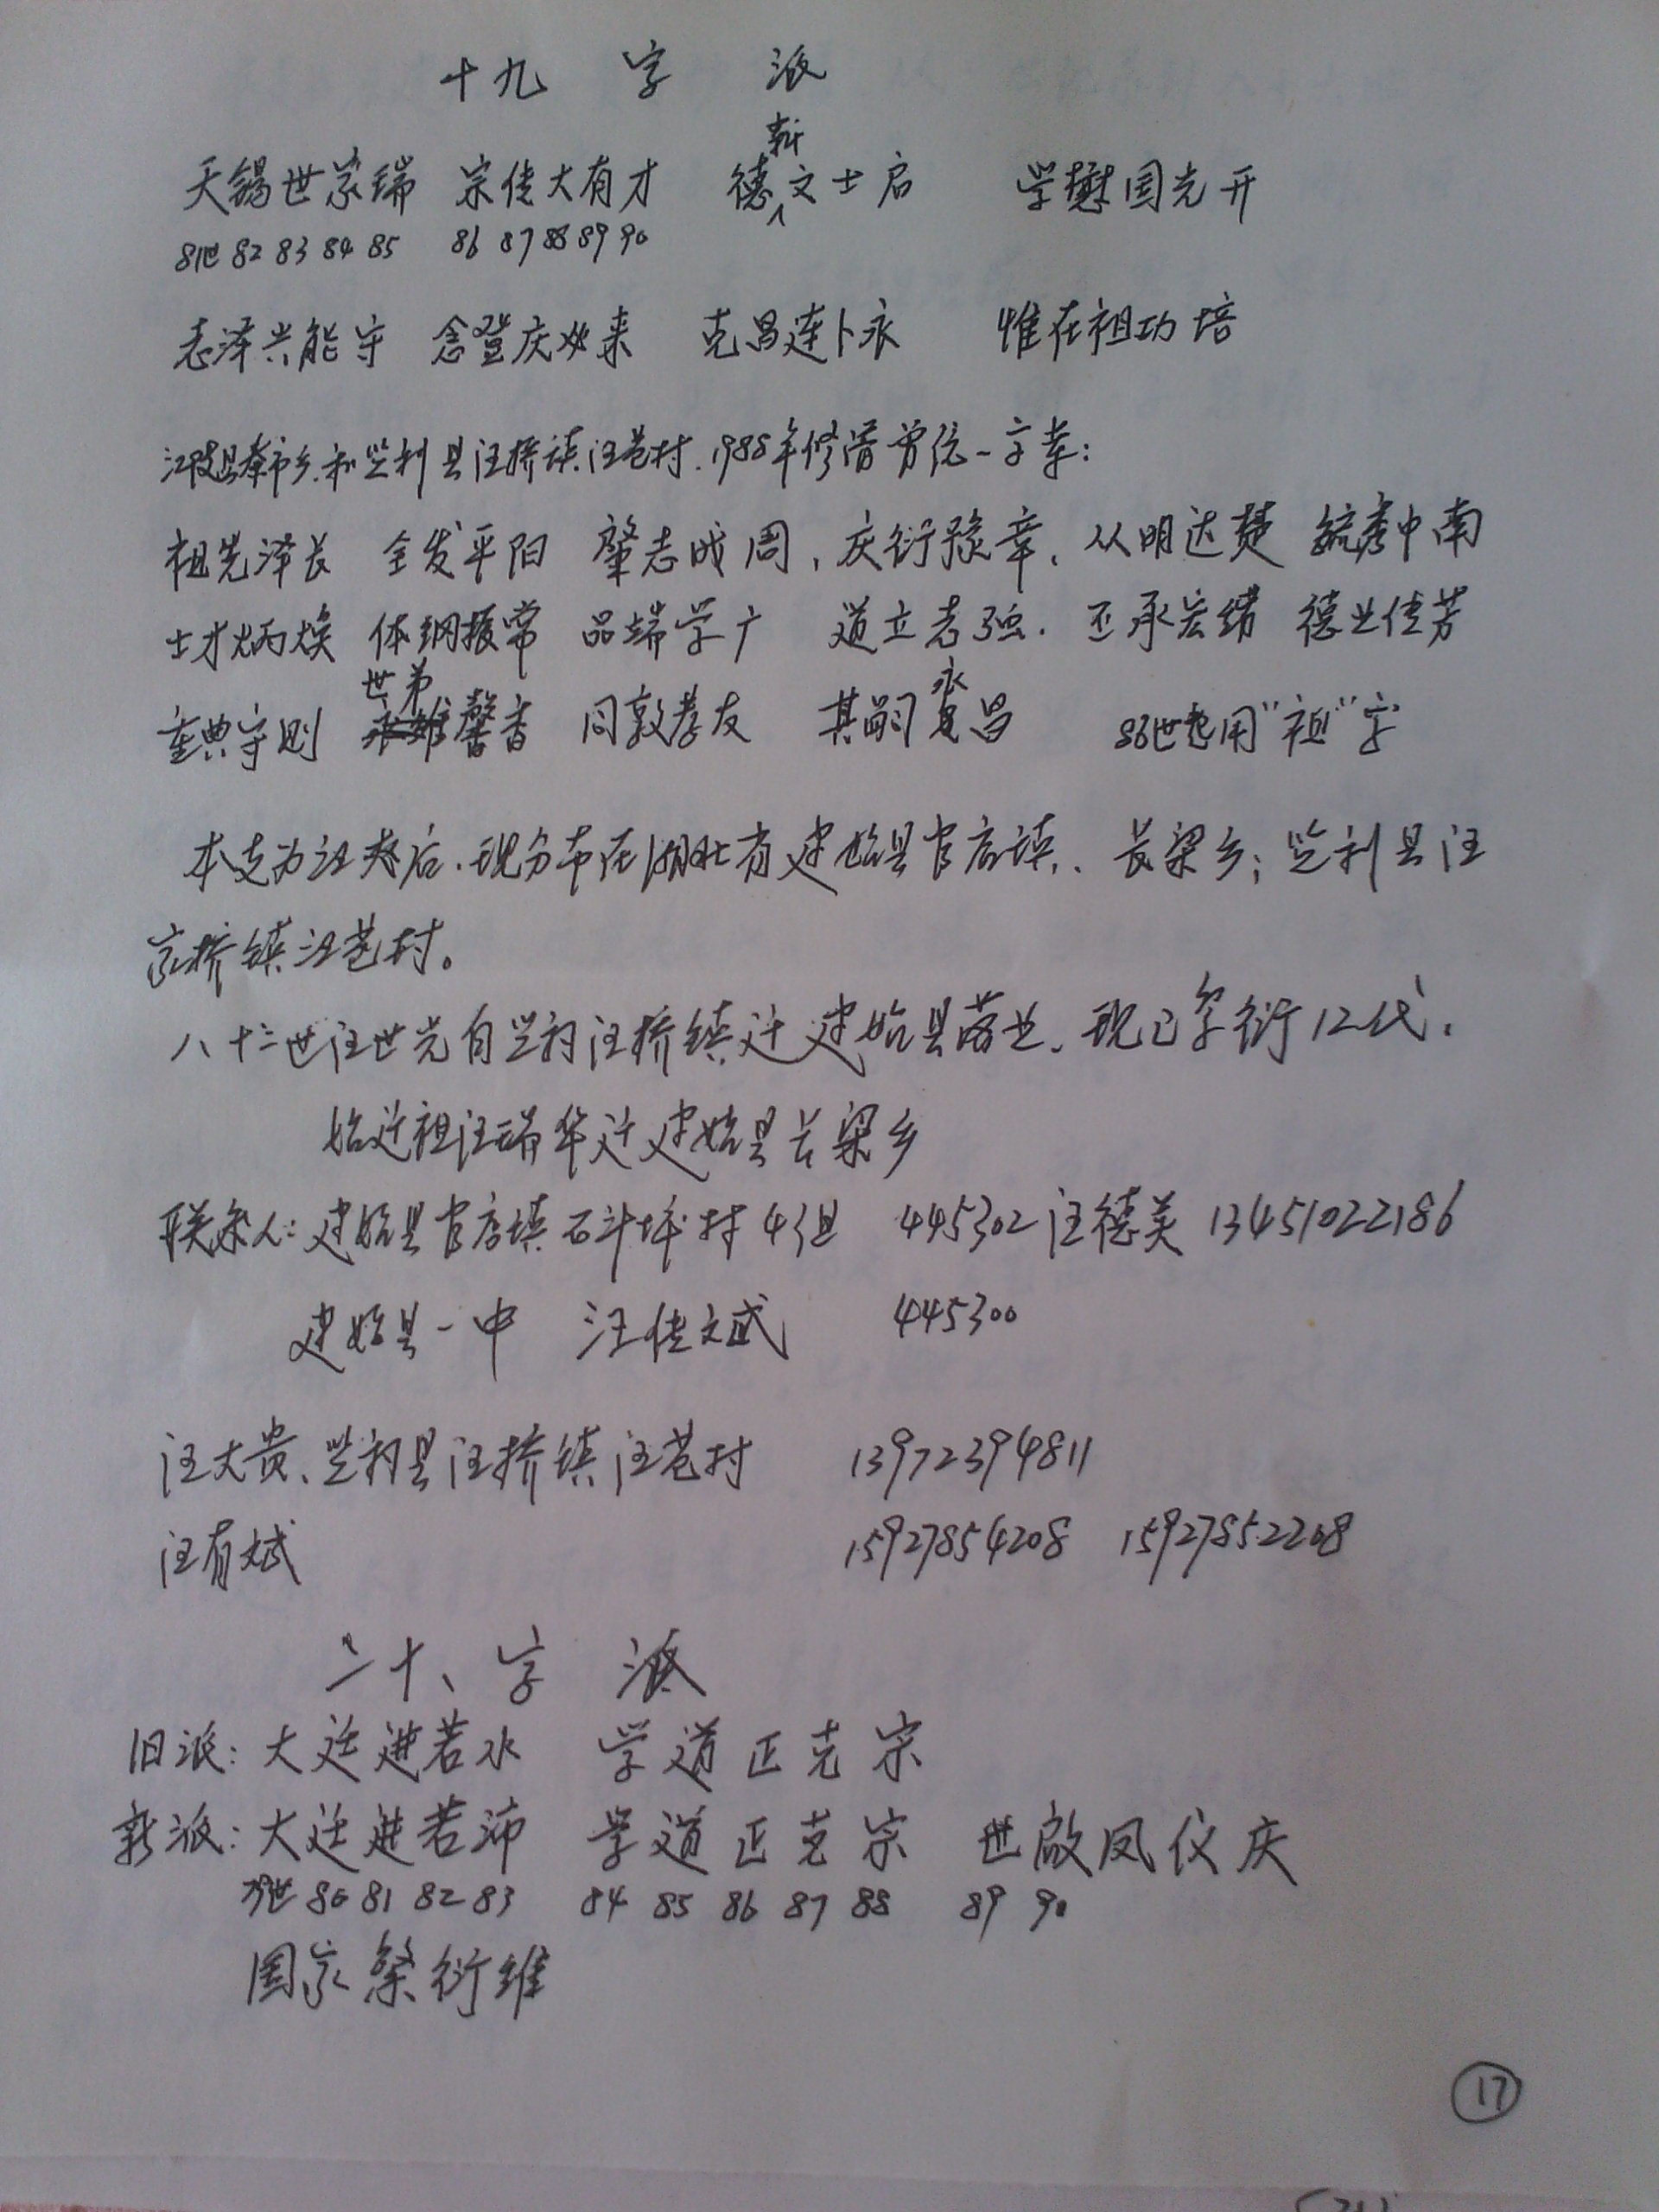 十九 字 派
天锡世家瑞 宗传大有才 德新文士启 学懋国光开
81世 82 83 84 85 86 87 88 89 90
志泽兴能守 念登庆必来 克昌连卜永 惟在祖功培
江陵县秦市乡.和监利县汪桥镇汪巷村.1988年修谱曾统一字辈:
祖先泽长 全发平阳 肇志成周,庆衍豫章,从明达楚 毓秀中南
士才炳焕 体纲振常 品端学广 道立志强.丕承宏绪 德业传芳
重典守则 世弟馨香 同敦孝友 其嗣永昌 86世起用"祖"字
本支为汪爽后.现分布在湖北省建始县官店镇、长梁乡;监利县汪
家桥镇汪巷村。
八十三世汪世光自监利汪桥镇迁建始县落业、现已字衍12代.
始迁祖汪瑞华迁建始县长梁乡
联系人:建始县官店镇石斗坪村4组 445302汪德美13451022186
建始县一中 汪传斌 445300
汪大贵、监利县汪桥镇汪巷村 13972394811
汪有斌 15927854208 15927852208
二十、字 派
旧派:大廷进若水 学道正克宗
新派:大廷进若沛 学道正克宗 世啟凤仪庆
79世 80 81 82 83 84 85 86 87 88 89 90
国家繁衍维
17